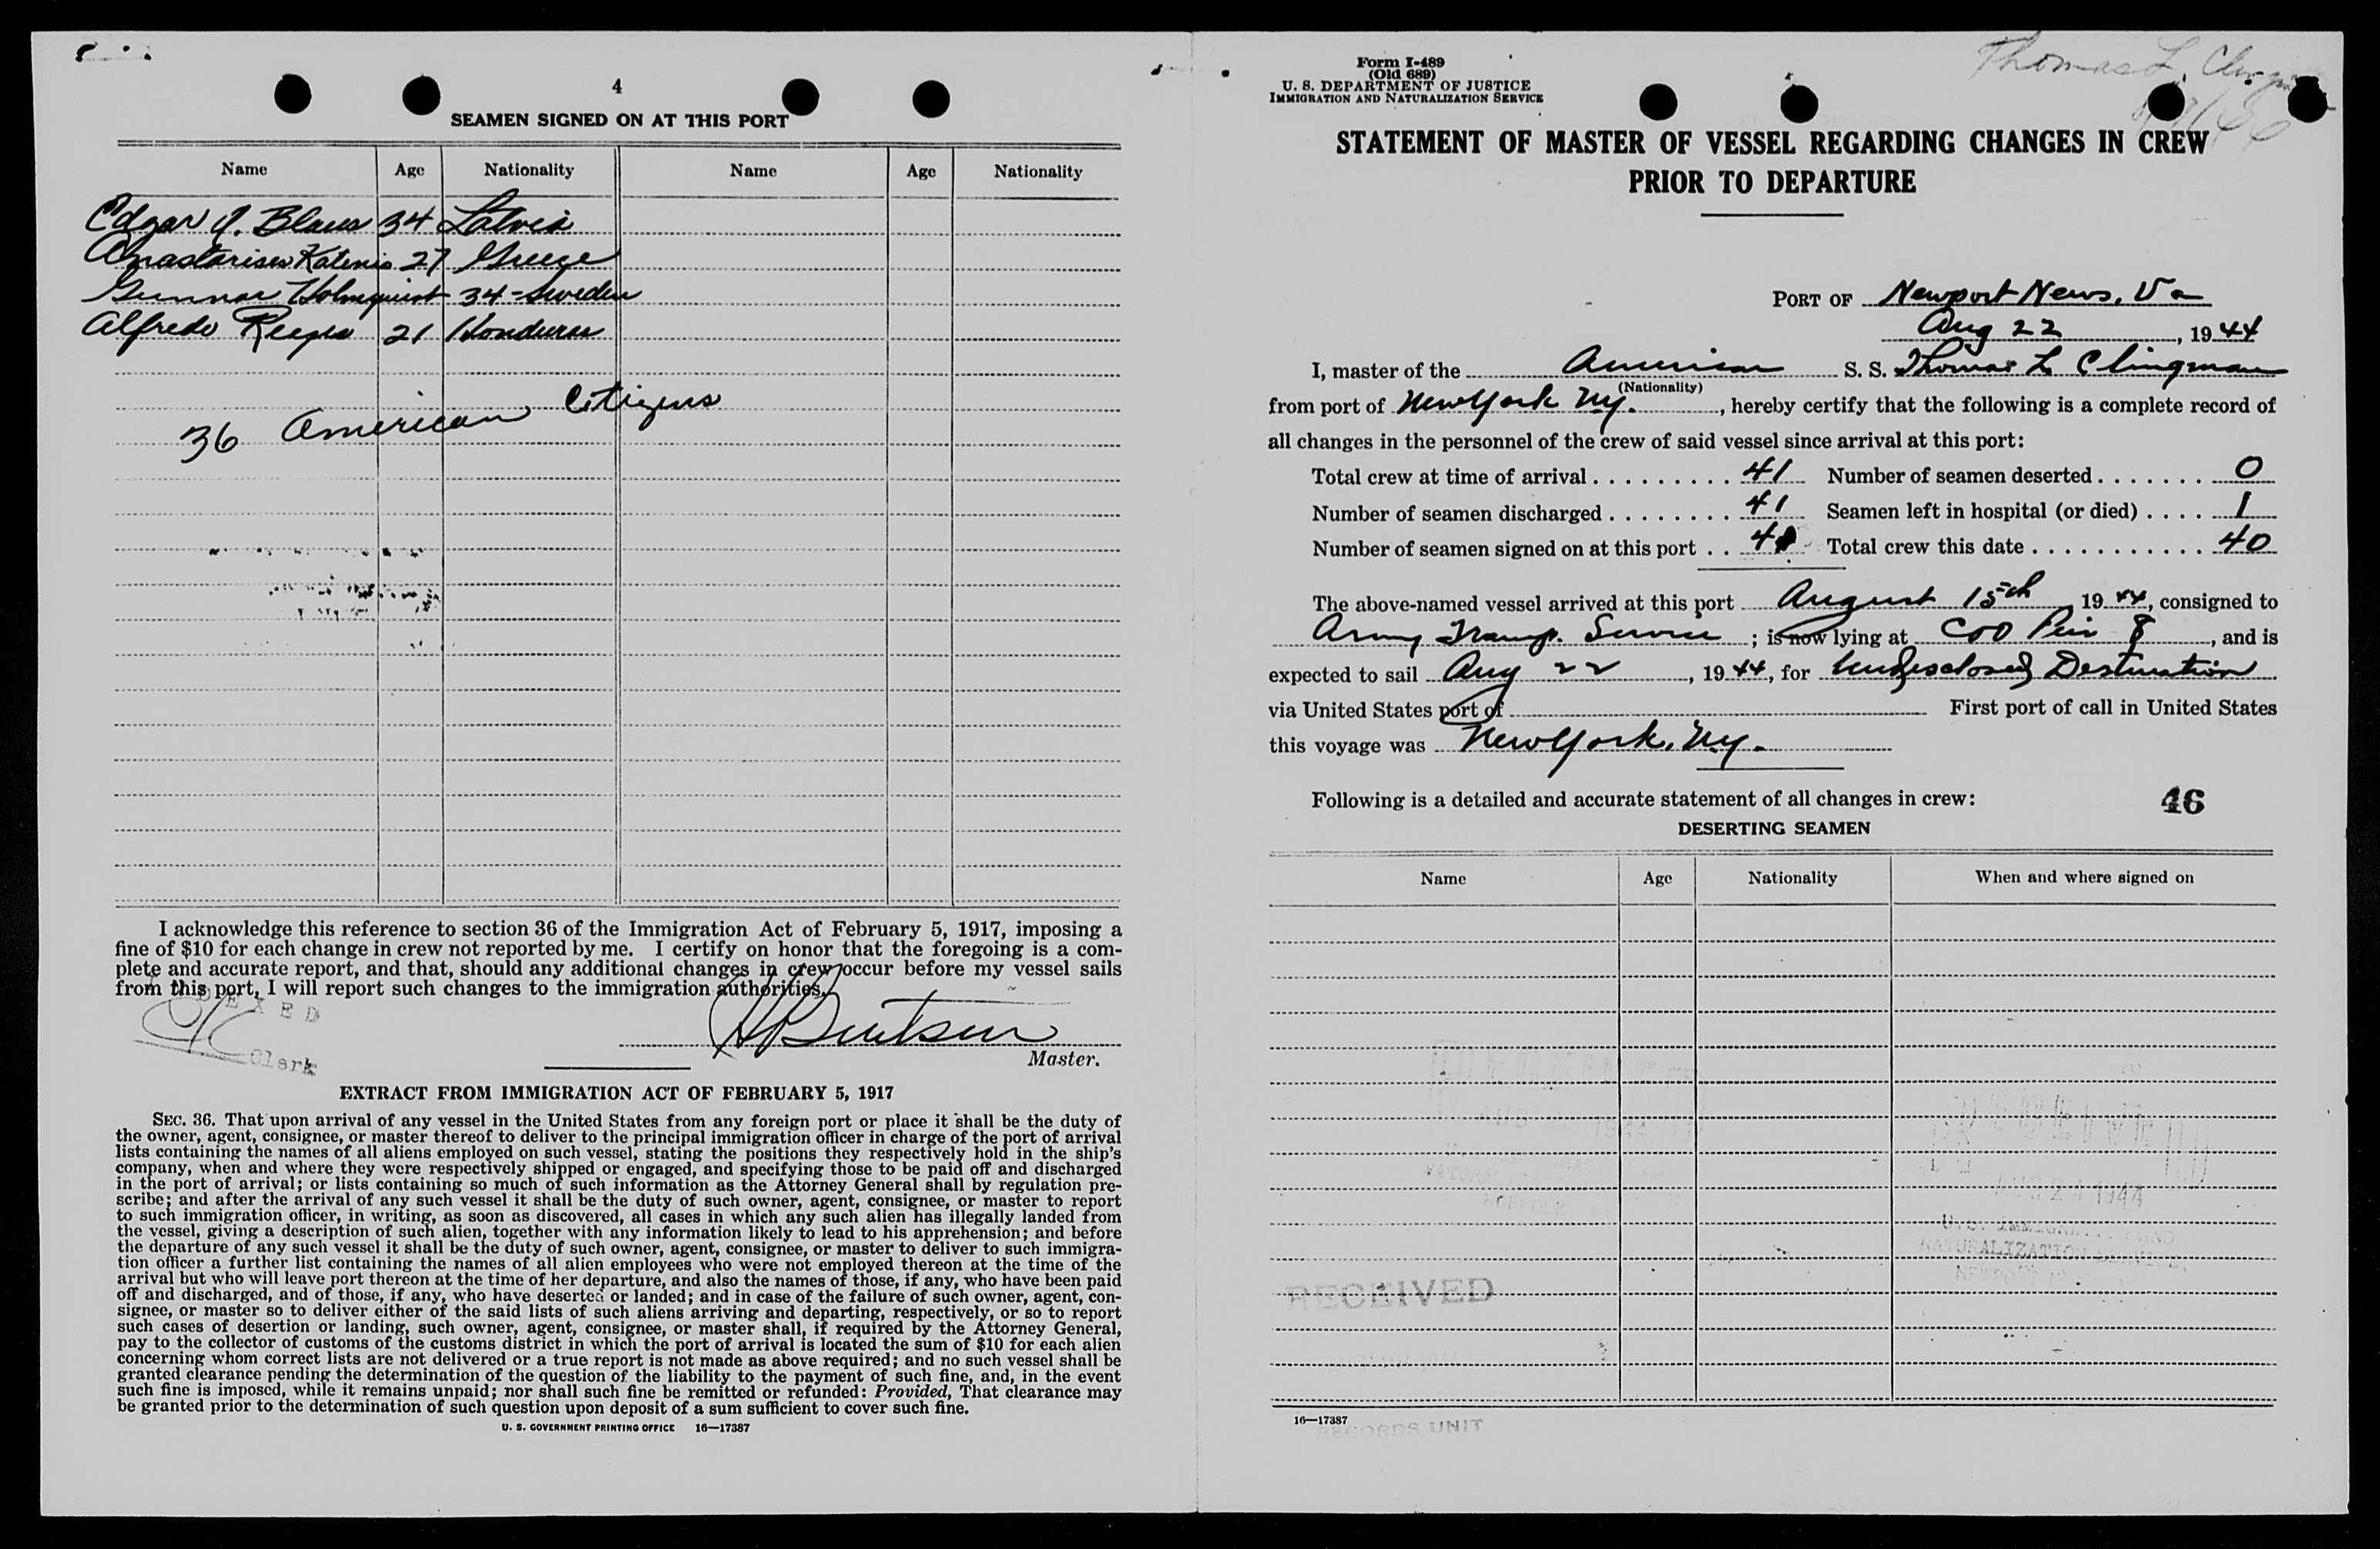 4
SEAMEN SIGNED ON AT THIS PORT
Name Age Nationality Name Age Nationality
Edgar J. Blaus 34 Latvia
Katenis 27 Greece
Gunnar Holmquist 34 - Sweden
Alfredo Reyes 21 Honduras
36 American Citizens
I acknowledge this reference to section 36 of the Immigration Act of February 5, 1917, imposing a
fine of $10 for each change in crew not reported by me. I certify on honor that the foregoing is a com-
plete and accurate report, and that, should any additional changes in crew occur before my vessel sails
from this port, I will report such changes to the immigration authorities.
Clerk
Master.
EXTRACT FROM IMMIGRATION ACT OF FEBRUARY 5, 1917
SEC. 36. That upon arrival of any vessel in the United States from any foreign port or place it shall be the duty of
the owner, agent, consignee, or master thereof to deliver to the principal immigration officer in charge of the port of arrival
lists containing the names of all aliens employed on such vessel, stating the positions they respectively hold in the ship's
company, when and where they were respectively shipped or engaged, and specifying those to be paid off and discharged
in the port of arrival; or lists containing so much of such information as the Attorney General shall by regulation pre-
scribe; and after the arrival of any such vessel it shall be the duty of such owner, agent, consignee, or master to report
to such immigration officer, in writing, as soon as discovered, all cases in which any such alien has illegally landed from
the vessel, giving a description of such alien, together with any information likely to lead to his apprehension; and before
the departure of any such vessel it shall be the duty of such owner, agent, consignee, or master to deliver to such immigra-
tion officer a further list containing the names of all alien employees who were not employed thereon at the time of the
arrival but who will leave port thereon at the time of her departure, and also the names of those, if any, who have been paid
off and discharged, and of those, if any, who have deserted or landed; and in case of the failure of such owner, agent, con-
signee, or master so to deliver either of the said lists of such aliens arriving and departing, respectively, or so to report
such cases of desertion or landing, such owner, agent, consignee, or master shall, if required by the Attorney General,
pay to the collector of customs of the customs district in which the port of arrival is located the sum of $10 for each alien
concerning whom correct lists are not delivered or a true report is not made as above required; and no such vessel shall be
granted clearance pending the determination of the question of the liability to the payment of such fine, and, in the event
such fine is imposed, while it remains unpaid; nor shall such fine be remitted or refunded: Provided, That clearance may
be granted prior to the determination of such question upon deposit of a sum sufficient to cover such fine.
U. S. GOVERNMENT PRINTING OFFICE 16—17387
Form I-489
(Old 689)
U. S. DEPARTMENT OF JUSTICE
IMMIGRATION AND NATURALIZATION SERVICE
Thomas L.
STATEMENT OF MASTER OF VESSEL REGARDING CHANGES IN CREW
PRIOR TO DEPARTURE
PORT OF Newport News, Va
Aug 22, 1944
I, master of the American S. S. Thomas L Clingman
(Nationality)
from port of New York NY., hereby certify that the following is a complete record of
all changes in the personnel of the crew of said vessel since arrival at this port:
Total crew at time of arrival 41 Number of seamen deserted 0
Number of seamen discharged 41 Seamen left in hospital (or died) 1
Number of seamen signed on at this port 40 Total crew this date 40
The above-named vessel arrived at this port August 15th 1944, consigned to
Army Transp. Service; is now lying at C&O Pier 8, and is
expected to sail Aug 22, 1944, for Undisclosed Destination
via United States port of First port of call in United States
this voyage was New York, NY.
Following is a detailed and accurate statement of all changes in crew: 46
DESERTING SEAMEN
Name Age Nationality When and where signed on
24 1944
RECEIVED
16—17387
RECORDS UNIT